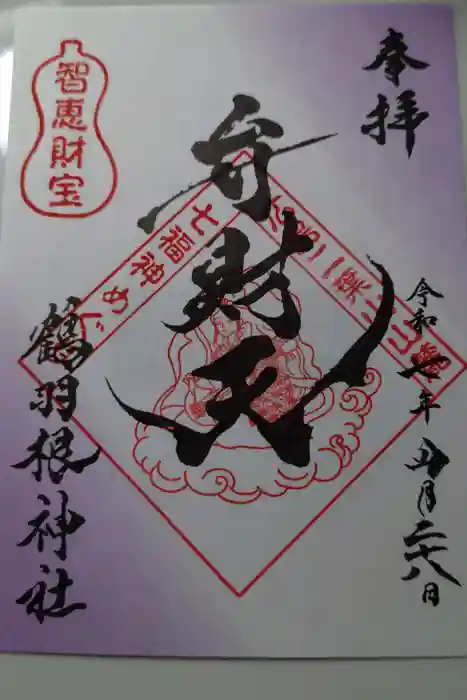 奉拝
弁財天
智恵財宝
二葉山山麓
七福神めぐ
令和七年五月二十八日
鶴羽根神社